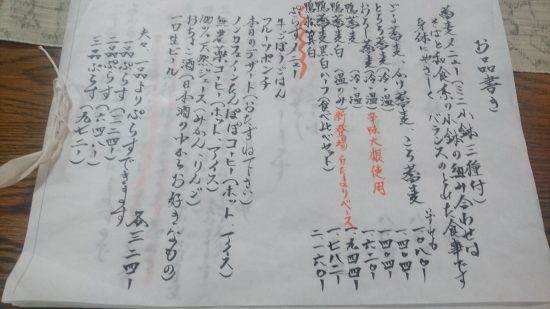 お品書き
蕎麦メニュー(ミニ小鉢三種付)
そばと和食中心小鉢の組み合わせは
身体にやさしく、バランスのとれた食事です
ざる蕎麦、かけ蕎麦、ころ蕎麦 いずれも 一、〇八〇ー
おろし蕎麦(冷・温) 辛味大根使用 一、四〇四ー
とろろ蕎麦(冷・温) 一、四〇四ー
鴨蕎麦(冷・温) 一、六二〇ー
鴨蕎麦白(温のみ) 新登場 白たまりベース 一、九四四ー
鴨蕎麦黒白ハーフ(食べ比べセット)
一、七八二ー
二、一六〇ー
ぷらすメニュー
牛ごぼうごはん
フルーツポンチ
本日のデザート(おたずね下さい)
ノンカフェインたんぽぽコーヒー(ホット アイス)
無農薬コーヒー(ホット アイス)
100%天然ジュース(みかん、りんご)
おちょこ酒(日本酒の中からお好きなもの)
一口生ビール
各三二四ー
夫々一品よりぷらすできます
一品ぷらす(三二四ー)
二品ぷらす(六四八ー)
三品ぷらす(九七二ー)